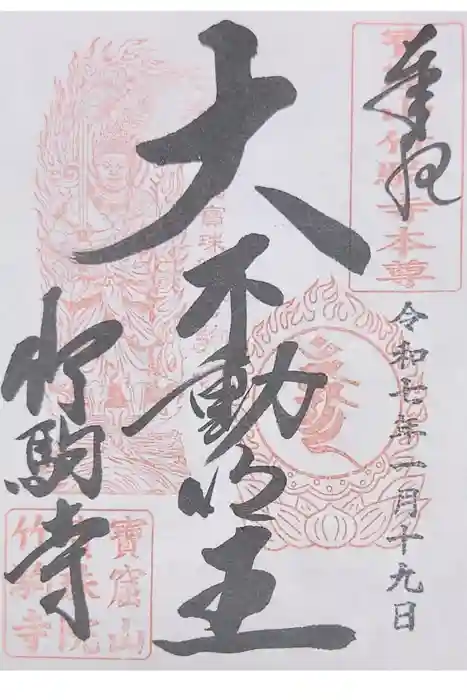 奉拝
寶窟山竹駒寺本尊
令和七年一月十九日
大不動明王
竹駒寺
寶窟山
富珠院
竹駒寺